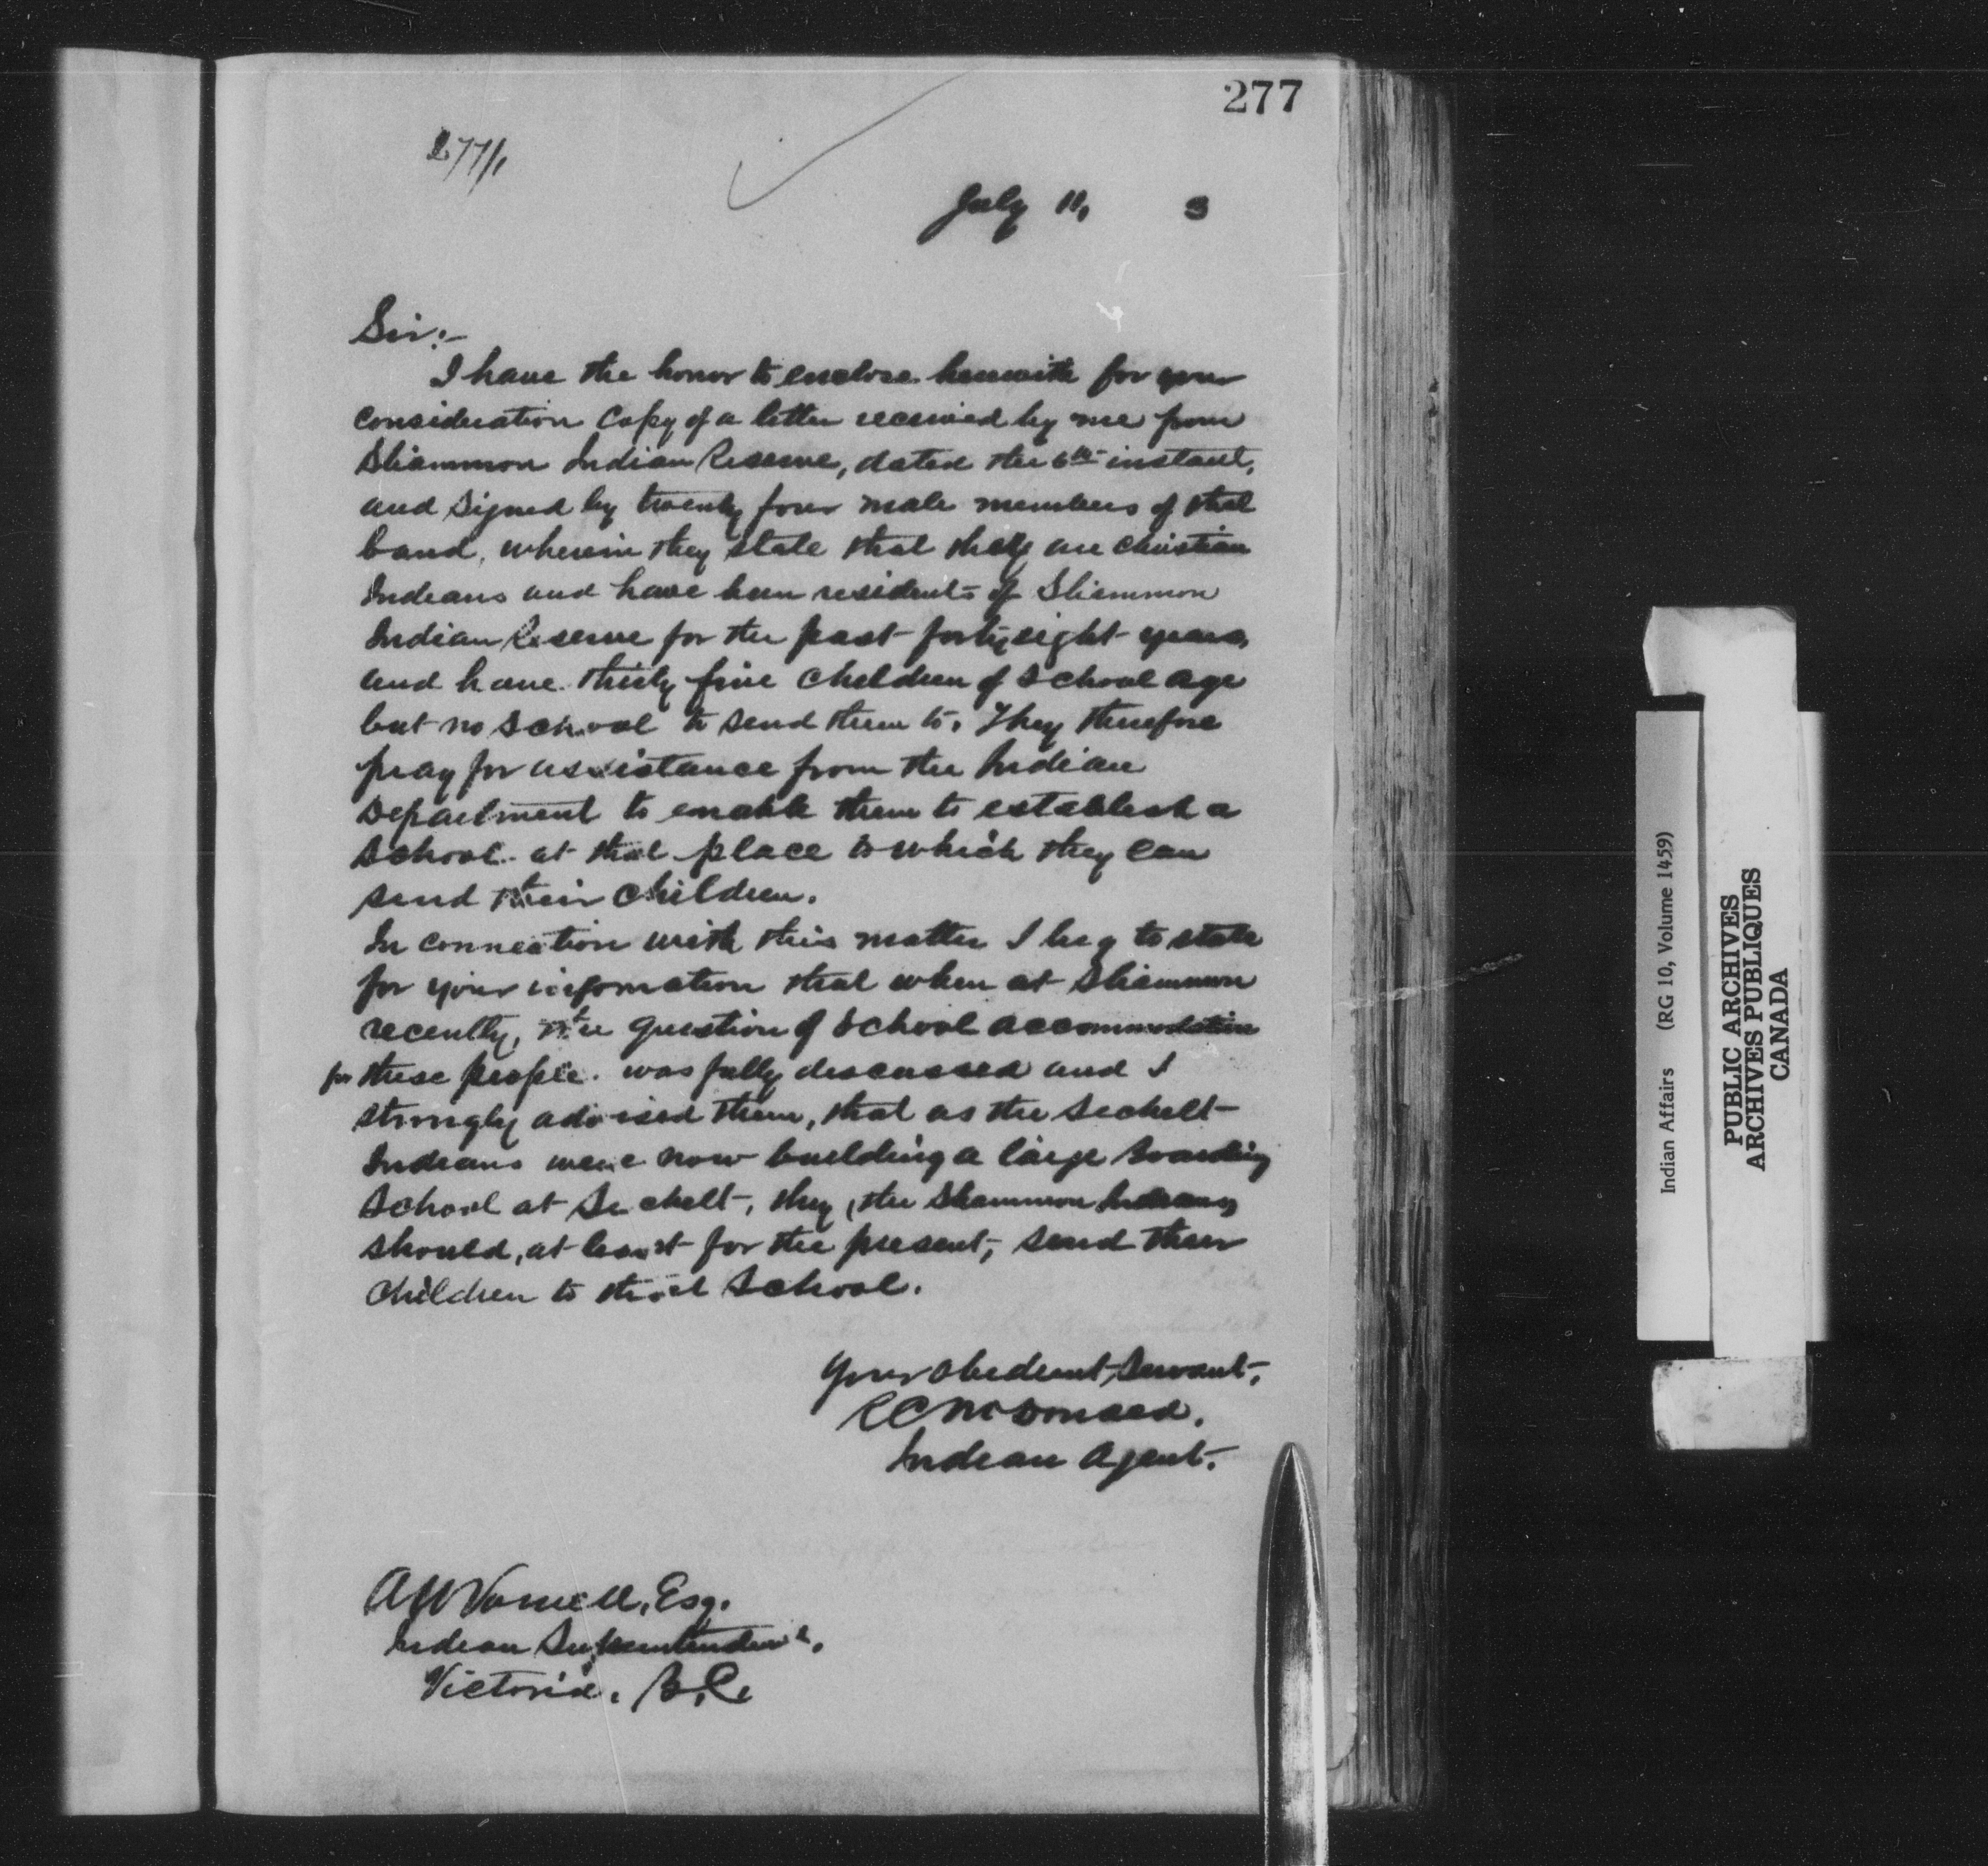 277
277/1
July 11, 3
Sir:-
I have the honor to enclose herewith for your
consideration Copy of a letter received by me from
Sliammon Indian Reserve, dated the 6th instant,
and signed by twenty four male members of that
band, wherein they state that they are Christian
Indians and have been residents of Sliammon
Indian Reserve for the past forty eight years,
and have thirty five children of School age
but no school to send them to. They therefore
pray for assistance from the Indian
Department to enable them to establish a
School at that place to which they can
send their children.
In connection with this matter I beg to state
for your information that when at Sliammon
recently, the question of School accommodation
for these people was fully discussed and I
strongly advised them, that as the Sechelt
Indians were now building a large boarding
School at Sechelt, they, the Sliammon Indians
should, at least for the present, send their
children to that School.
Your obedient servant,
R C McDonald.
Indian Agent.
A W Vowell, Esq.
Indian Superintendent,
Victoria, B.C.
Indian Affairs (RG 10, Volume 1459)
PUBLIC ARCHIVES
ARCHIVES PUBLIQUES
CANADA